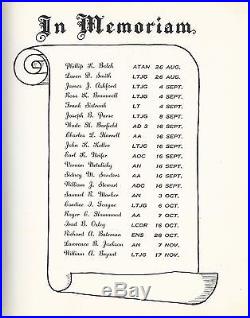 In Memoriam
Phillip K. Balch ATAN 26 AUG.
Loren D. Smith LTJG 26 AUG.
James J. Ashford LTJG 4 SEPT.
Ross K. LTJG 4 SEPT.
Frank LT 4 SEPT.
Joseph B. LTJG 8 SEPT.
Wade M. Barfield AD 3 16 SEPT.
Charles L. AA 16 SEPT.
John K. LTJG 16 SEPT.
Earl K. AOC 16 SEPT.
Vernon AN 16 SEPT.
Sidney M. Sanders AA 16 SEPT.
William J. Stewart ADC 16 SEPT.
Samuel R. AN 3 OCT.
LTJG 6 OCT.
Roger G. Hammond AA 7 OCT.
B. Oxley LCDR 16 OCT.
Richard A. Bateman ENS 28 OCT.
Lawrence B. Jackson AN 7 NOV.
William A. Bryant LTJG 17 NOV.